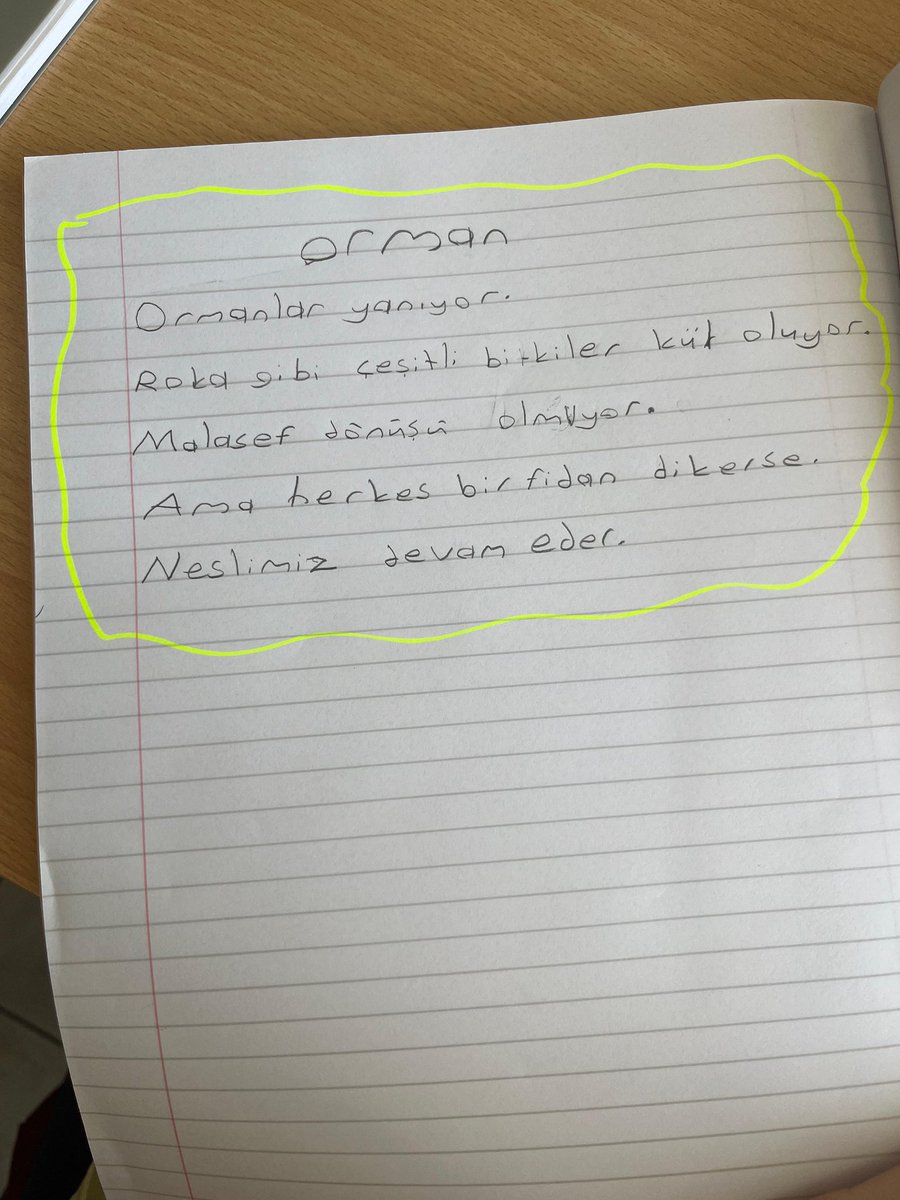 Orman
Ormanlar yanıyor.
Roka gibi çeşitli bitkiler kül oluyor.
Malasef dönüşü olmuyor.
Ama herkes bir fidan dikerse.
Neslimiz devam eder.